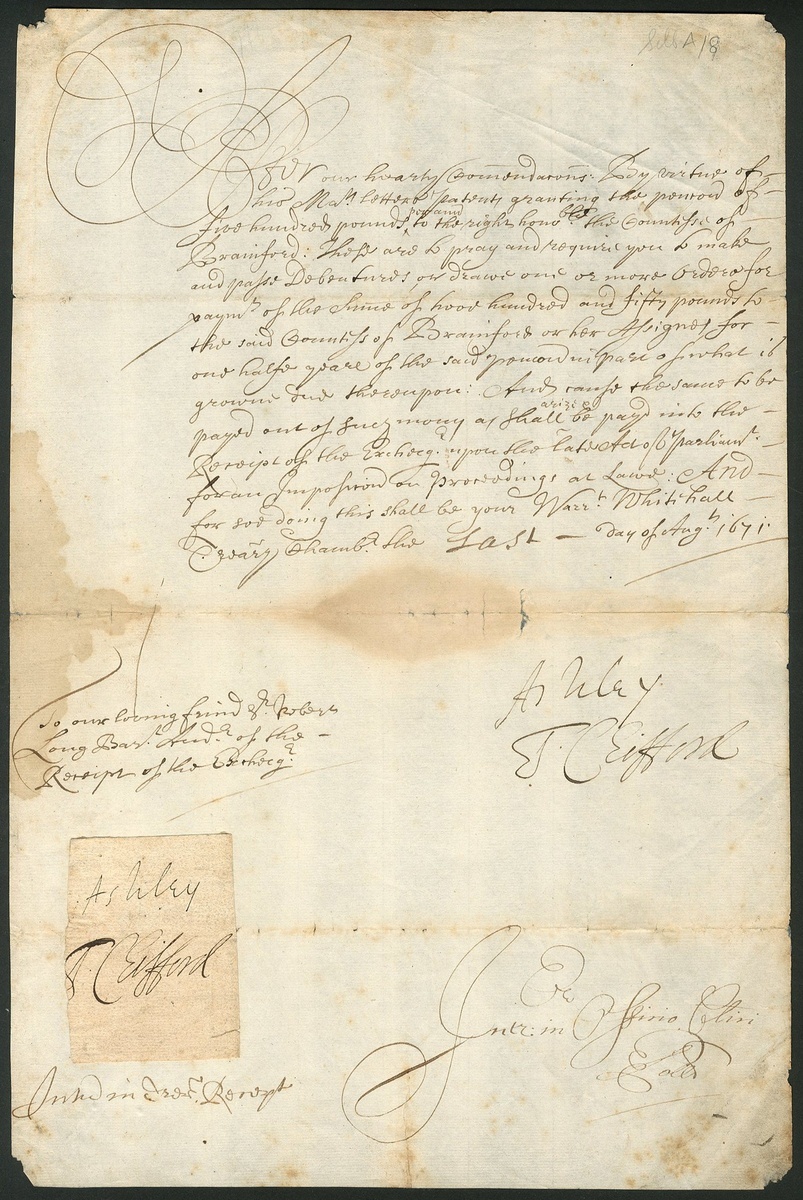 After our hearty Com̄endacons: By virtue of
his Ma.ts letters Patents granting the pencon of
five hundred pounds per ann to the right hono.ble the Countesse of
Brainford: These are to pray and require you to make
and passe Debentures or drawe one or more Orders for
paym.t of the Sum̄e of twoe hundred and fifty pounds to
the said Countess of Brainford or her Assignes for
one halfe yeare of the said pencon in part of what is
growne due thereupon: And cause the same to be
payed out of such mony as shall arize & be payd into the
Receipt of the Excheq.r upon the late Act of Parliam.t
for an Imposicon on Proceedings at Lawe: And
for soe doing this shall be your Warr.t Whitehall
Treãry Chamb.r the Last day of Aug.t 1671.
Ashley
T. Clifford
To our loving frind S.r Robert
Long Bar.t Aud.r of the
Receipt of the Excheq.r
Ashley
T. Clifford
Intr: in Officio Clÿi
Pell
A/8